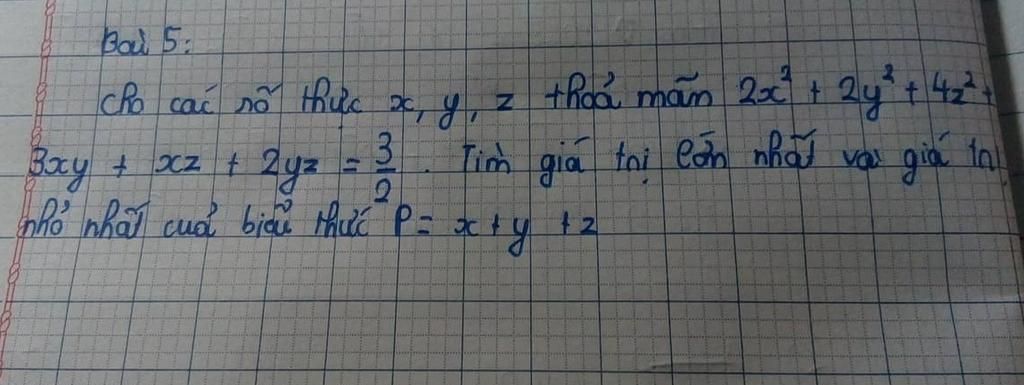 Bài 5:
Cho các số thực x, y, z thoả mãn 2x² + 2y² + 4z² +
3xy + xz + 2yz = 3/2. Tìm giá trị lớn nhất và giá trị
nhỏ nhất của biểu thức P = x + y + z